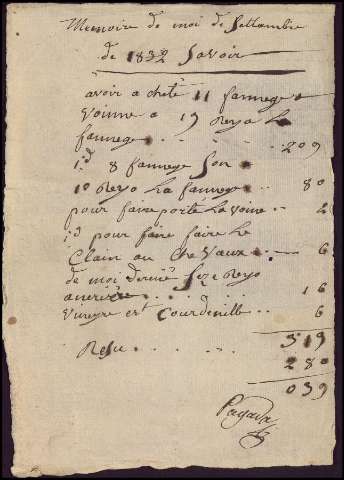 Memoire de moi de Settembre
de 1832 Savoir
avoir a cheté 11 fannege a
voinne a 19 Reyo la
fannege . . . . . 209
id 8 fannege Son a
10 Reyo La fannege . . 80
pour faire porté La voine . . 2
id pour faire faire le
Clain au cheVaux . . . 6
de moi derniê Seze Reyo
. . . . 16
et Courdenille . . 6
319
Resu . . . . . 280
039
Pagava